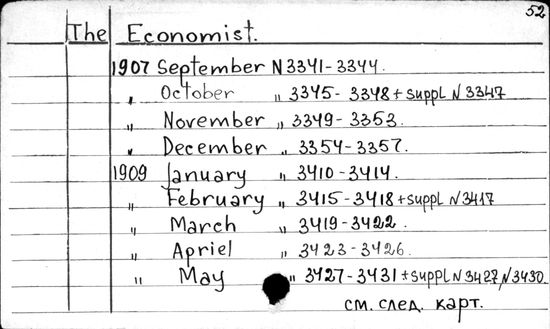 52
The Economist.
1907 September N 3341-3344.
„ October „ 3345-3348 + suppl N 3347
„ November „ 3349-3353.
„ December „ 3354-3357.
1909 January „ 3410-3414.
„ February „ 3415-3418 + suppl N 3417
„ March „ 3419-3422.
„ Apriel „ 3423-3426.
„ May „ 3427-3431 + suppl N 3427, N 3430.
см. след. карт.